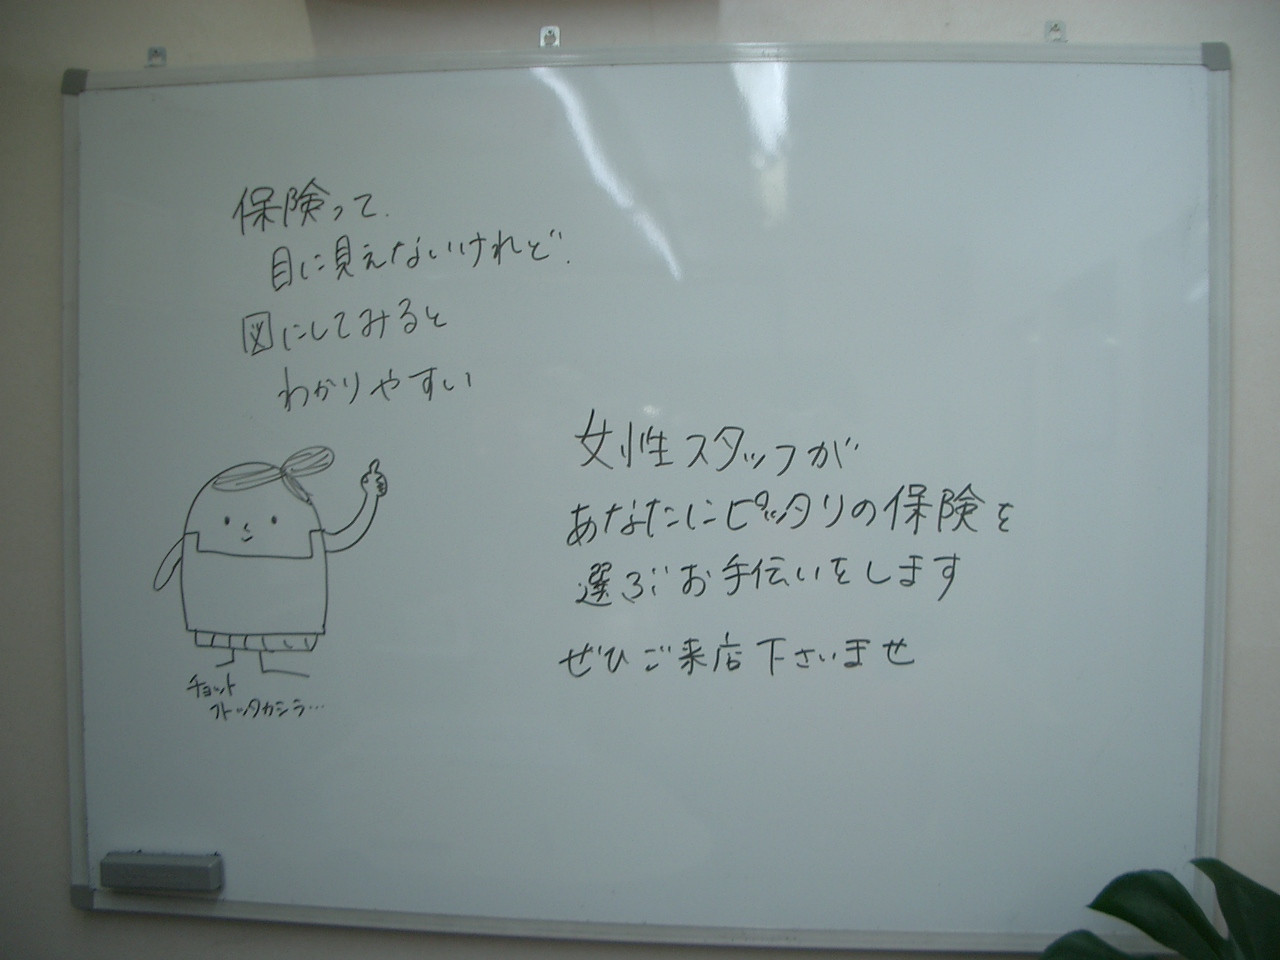 保険って、
目に見えないけれど、
図にしてみると
わかりやすい
チョット
フトックカシラ…
女性スタッフが
あなたにピッタリの保険を
選ぶお手伝いをします
ぜひご来店下さいませ